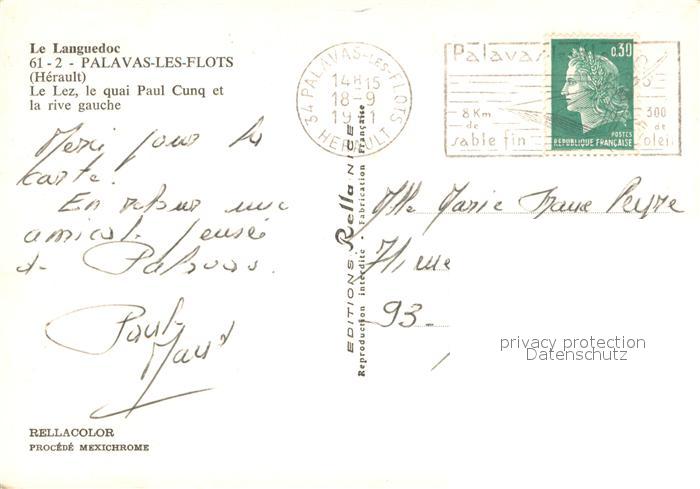 Le Languedoc
61 - 2 - PALAVAS-LES-FLOTS
(Hérault)
Le Lez, le quai Paul Cunq et
la rive gauche
Merci pour la
carte.
En retour une
amicale pensée
de Palavas.
Paul
RELLACOLOR
PROCÉDÉ MEXICHROME
EDITIONS Rella NICE
Reproduction interdite - Fabrication Française
34 PALAVAS-LES-FLOTS
14H15
18-9
19 1
HERAULT
Palavas
8 Km
de
sable fin
300
de
solei
0,30
POSTES
REPUBLIQUE FRANÇAISE
Mlle Marie
93-
privacy protection
Datenschutz